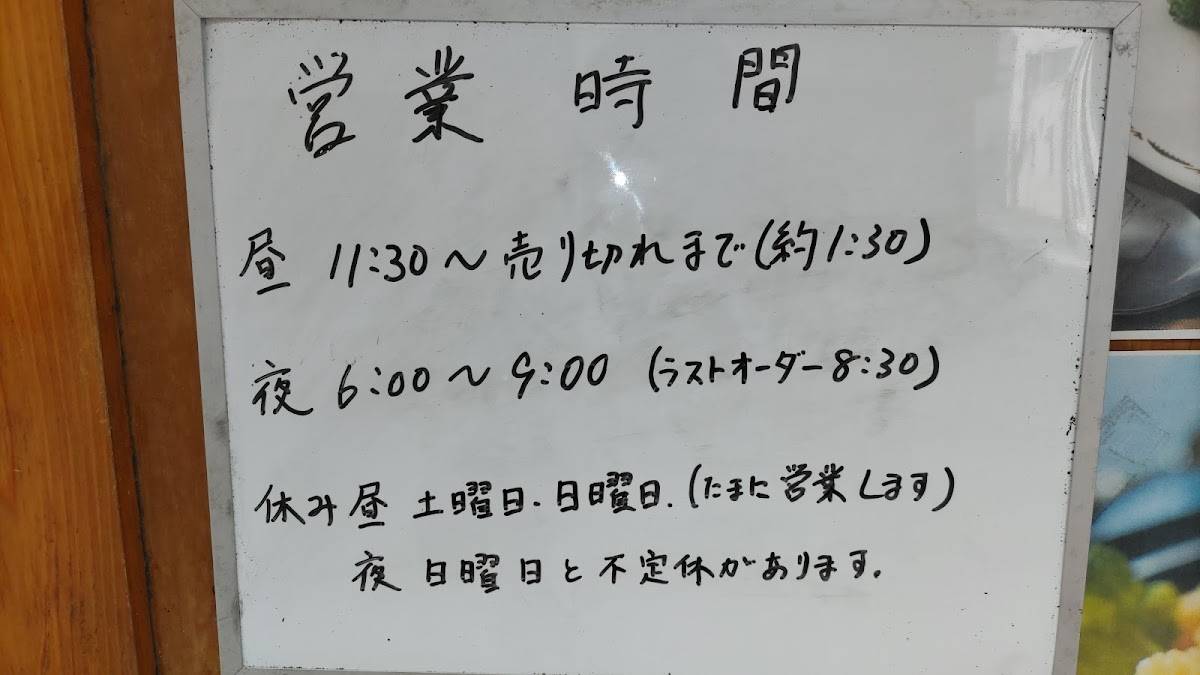 営業時間
昼 11:30～売り切れまで(約1:30)
夜 6:00～9:00 (ラストオーダー8:30)
休み昼 土曜日.日曜日.(たまに営業します)
夜 日曜日と不定休があります.